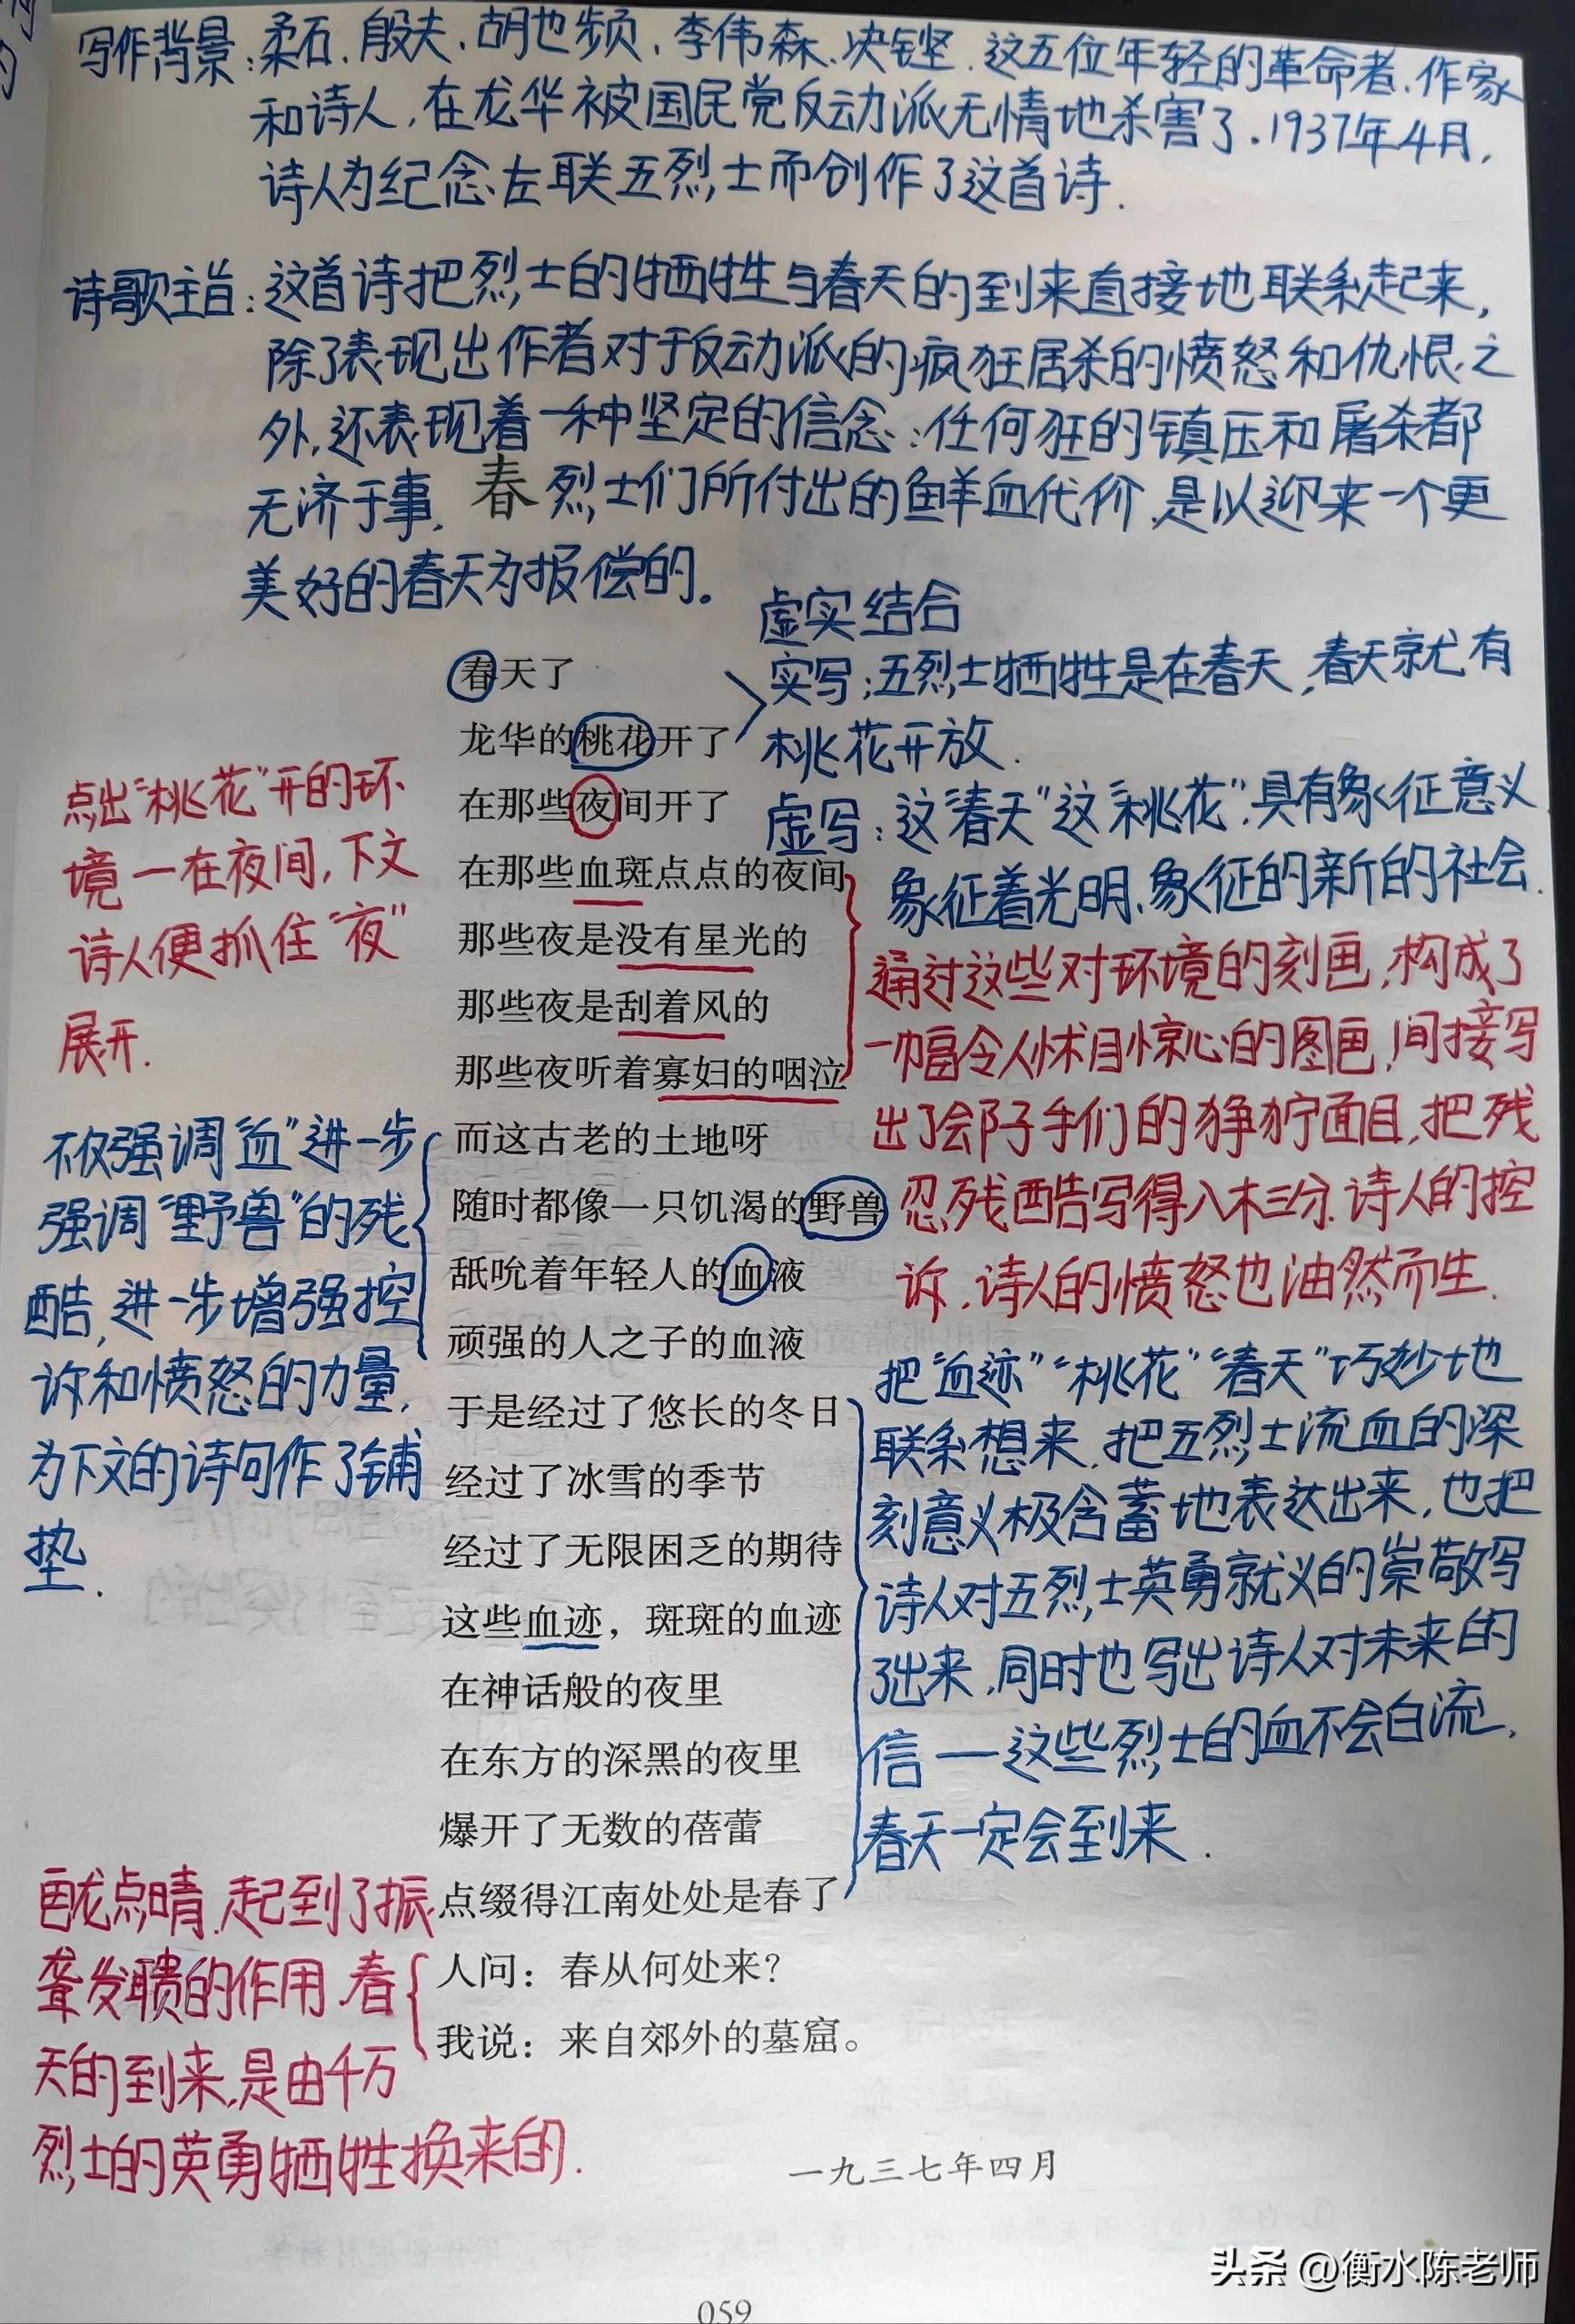 写作背景:柔石、殷夫、胡也频、李伟森、冯铿、这五位年轻的革命者、作家
和诗人,在龙华被国民党反动派无情地杀害了.1937年4月,
诗人为纪念左联五烈士而创作了这首诗.
诗歌主旨:这首诗把烈士的牺牲与春天的到来直接地联系起来,
除了表现出作者对于反动派的疯狂屠杀的愤怒和仇恨之
外,还表现着一种坚定的信念:任何狂的镇压和屠杀都
无济于事. 春 烈士们所付出的鲜血代价,是以迎来一个更
美好的春天为报偿的。
虚实结合
实写:五烈士牺牲是在春天,春天就有
桃花开放.
虚写:这“春天”这“桃花”.具有象征意义
象征着光明、象征的新的社会.
通过这些对环境的刻画,构成了
一幅令人怵目惊心的图画,间接写
出了刽子手们的狰狞面目,把残
忍残酷写得入木三分.诗人的控
诉.诗人的愤怒也油然而生.
把“血迹”“桃花”“春天”巧妙地
联系想来,把五烈士流血的深
刻意义极含蓄地表达出来,也把
诗人对五烈士英勇就义的崇敬写
了出来.同时也写出诗人对未来的
信一这些烈士的血不会白流,
春天一定会到来.
点出“桃花”开的环
境一在夜间,下文
诗人便抓住“夜”
展开.
不仅强调“血”进一步
强调“野兽”的残
酷,进一步增强控
诉和愤怒的力量,
为下文的诗句作了铺
垫.
画龙点睛.起到了振
聋发聩的作用.春
天的到来,是由千万
烈士的英勇牺牲换来的.
春天了
龙华的桃花开了
在那些夜间开了
在那些血斑点点的夜间
那些夜是没有星光的
那些夜是刮着风的
那些夜听着寡妇的咽泣
而这古老的土地呀
随时都像一只饥渴的野兽
舐吮着年轻人的血液
顽强的人之子的血液
于是经过了悠长的冬日
经过了冰雪的季节
经过了无限困乏的期待
这些血迹,斑斑的血迹
在神话般的夜里
在东方的深黑的夜里
爆开了无数的蓓蕾
点缀得江南处处是春了
人问:春从何处来?
我说:来自郊外的墓窟。
一九三七年四月
059
头条 @衡水陈老师